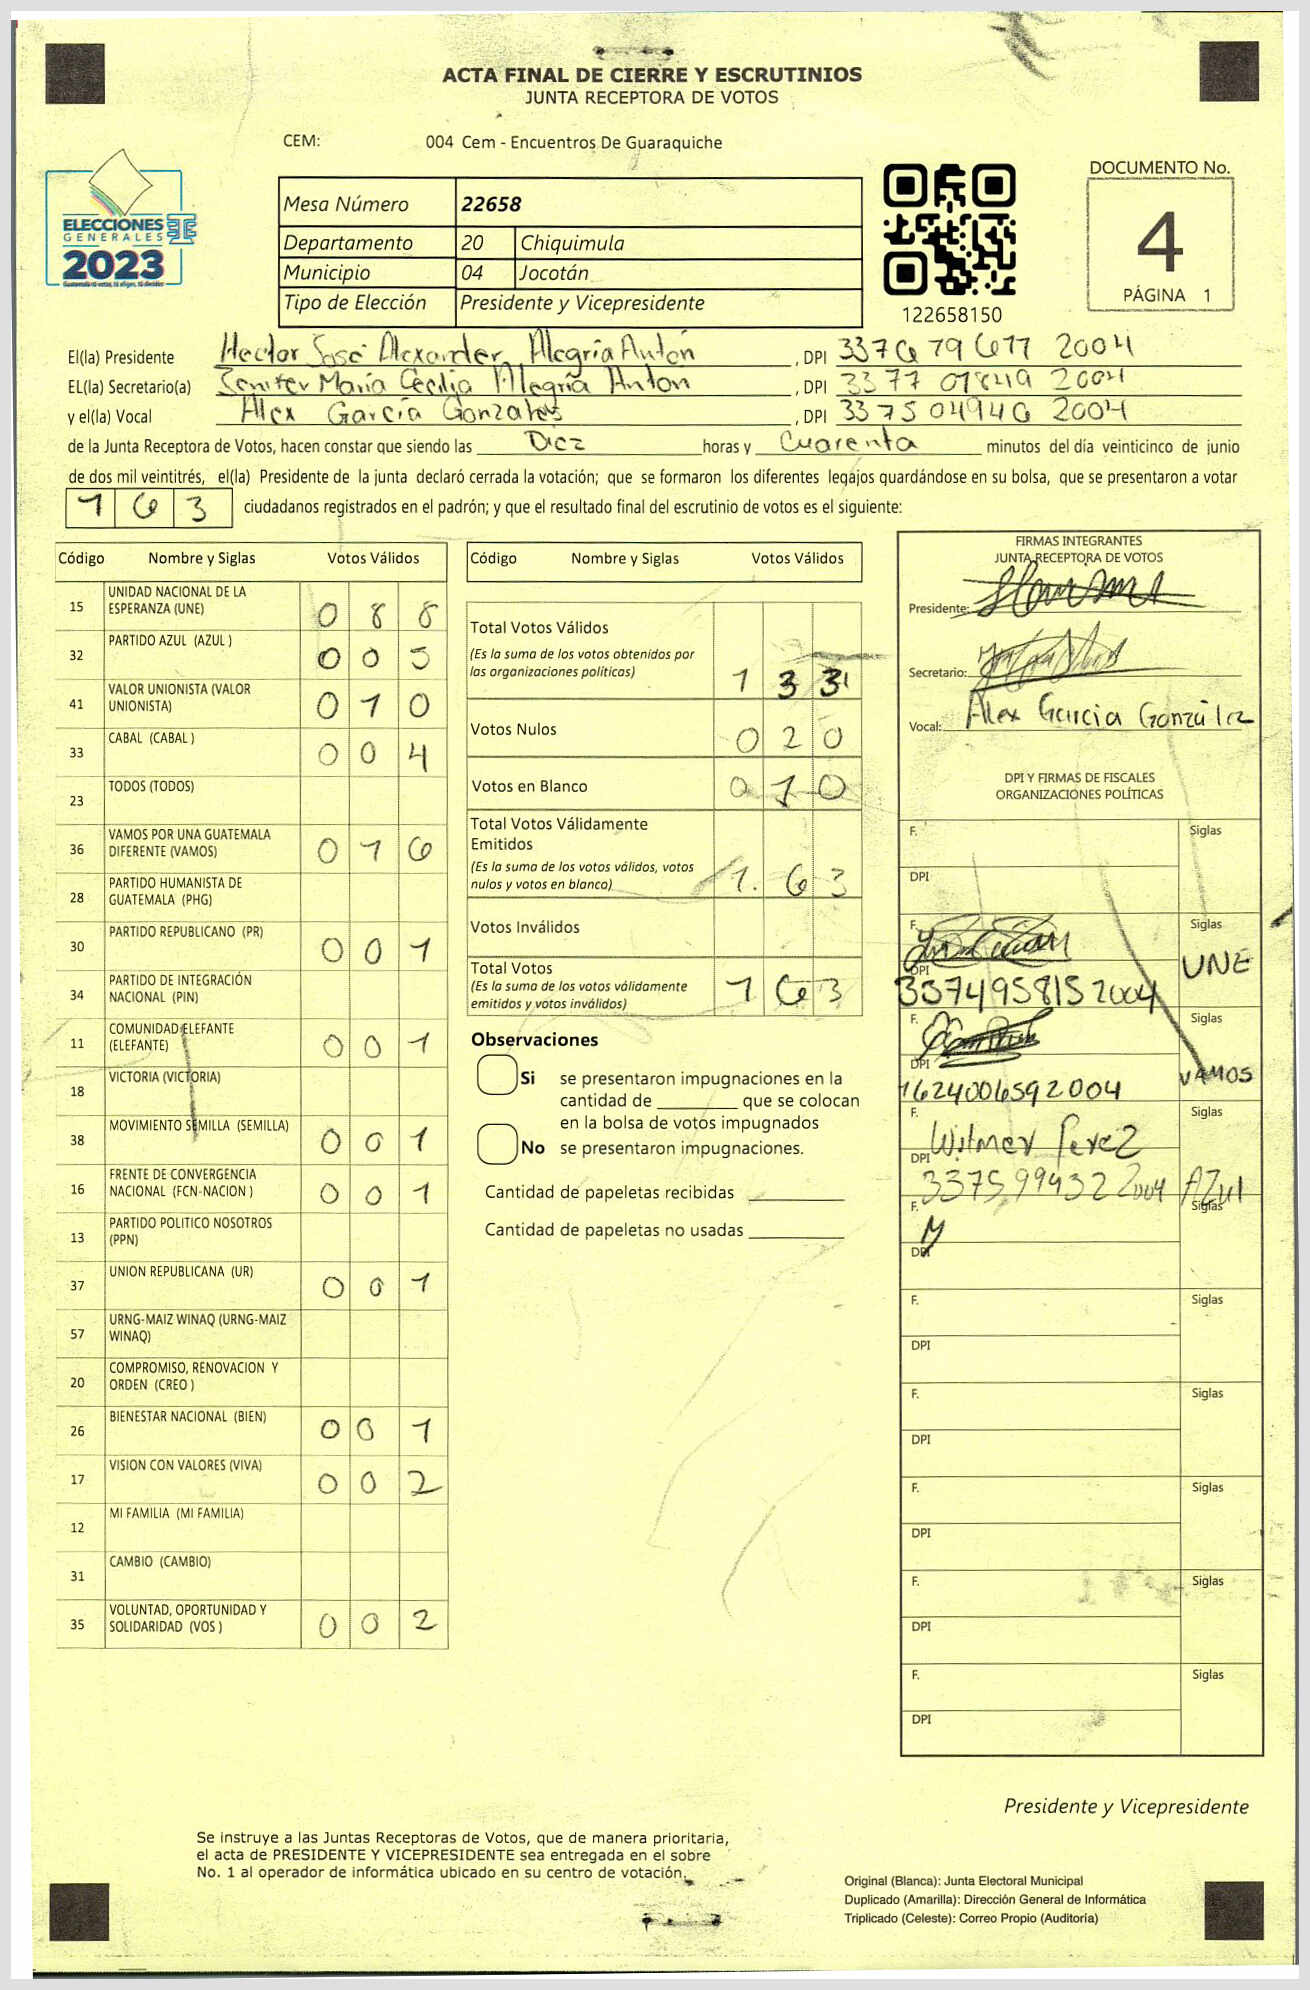 ACTA FINAL DE CIERRE Y ESCRUTINIOS
JUNTA RECEPTORA DE VOTOS
CEM: 004 Cem - Encuentros De Guaraquiche
ELECCIONES
GENERALES
2023
Mesa Número 22658
Departamento 20 Chiquimula
Municipio 04 Jocotán
Tipo de Elección Presidente y Vicepresidente
122658150
DOCUMENTO No.
4
PÁGINA 1
El(la) Presidente Hector José Alexander Alegría Antón , DPI 3376796772004
EL(la) Secretario(a) Jenifer María Cecilia Alegría Anton , DPI 3377 01849 2004
y el(la) Vocal Alex García Gonzales , DPI 337504940 2004
de la Junta Receptora de Votos, hacen constar que siendo las Diez horas y Cuarenta minutos del día veinticinco de junio
de dos mil veintitrés, el(la) Presidente de la junta declaró cerrada la votación; que se formaron los diferentes legajos guardándose en su bolsa, que se presentaron a votar
163 ciudadanos registrados en el padrón; y que el resultado final del escrutinio de votos es el siguiente:
Código Nombre y Siglas Votos Válidos
15 UNIDAD NACIONAL DE LA
ESPERANZA (UNE) 0 8 8
32 PARTIDO AZUL (AZUL ) 0 0 5
41 VALOR UNIONISTA (VALOR
UNIONISTA) 0 1 0
33 CABAL (CABAL ) 0 0 4
23 TODOS (TODOS)
36 VAMOS POR UNA GUATEMALA
DIFERENTE (VAMOS) 0 1 6
28 PARTIDO HUMANISTA DE
GUATEMALA (PHG)
30 PARTIDO REPUBLICANO (PR) 0 0 1
34 PARTIDO DE INTEGRACIÓN
NACIONAL (PIN)
11 COMUNIDAD ELEFANTE
(ELEFANTE) 0 0 1
18 VICTORIA (VICTORIA)
38 MOVIMIENTO SEMILLA (SEMILLA) 0 0 1
16 FRENTE DE CONVERGENCIA
NACIONAL (FCN-NACION ) 0 0 1
13 PARTIDO POLITICO NOSOTROS
(PPN)
37 UNION REPUBLICANA (UR) 0 0 1
57 URNG-MAIZ WINAQ (URNG-MAIZ
WINAQ)
20 COMPROMISO, RENOVACION Y
ORDEN (CREO )
26 BIENESTAR NACIONAL (BIEN) 0 0 1
17 VISION CON VALORES (VIVA) 0 0 2
12 MI FAMILIA (MI FAMILIA)
31 CAMBIO (CAMBIO)
35 VOLUNTAD, OPORTUNIDAD Y
SOLIDARIDAD (VOS ) 0 0 2
Código Nombre y Siglas Votos Válidos
Total Votos Válidos
(Es la suma de los votos obtenidos por
las organizaciones políticas) 1 3 3
Votos Nulos 0 2 0
Votos en Blanco 0 1 0
Total Votos Válidamente
Emitidos
(Es la suma de los votos válidos, votos
nulos y votos en blanco) 1 6 3
Votos Inválidos
Total Votos
(Es la suma de los votos válidamente
emitidos y votos inválidos) 1 6 3
Observaciones
Si se presentaron impugnaciones en la
cantidad de ________ que se colocan
en la bolsa de votos impugnados
No se presentaron impugnaciones.
Cantidad de papeletas recibidas
Cantidad de papeletas no usadas
FIRMAS INTEGRANTES
JUNTA RECEPTORA DE VOTOS
Presidente:
Secretario:
Vocal: Alex Garcia Gonzálz
DPI Y FIRMAS DE FISCALES
ORGANIZACIONES POLÍTICAS
F. Siglas
DPI
F. Siglas
UNE
DPI
3374958152004
F. Siglas
DPI VAMOS
1624006592004
F. Wilmer Perez Siglas
DPI 3375994322004 AZul
F. Siglas
DPI
F. Siglas
DPI
F. Siglas
DPI
F. Siglas
DPI
F. Siglas
DPI
F. Siglas
DPI
Presidente y Vicepresidente
Se instruye a las Juntas Receptoras de Votos, que de manera prioritaria,
el acta de PRESIDENTE Y VICEPRESIDENTE sea entregada en el sobre
No. 1 al operador de informática ubicado en su centro de votación.
Original (Blanca): Junta Electoral Municipal
Duplicado (Amarilla): Dirección General de Informática
Triplicado (Celeste): Correo Propio (Auditoría)